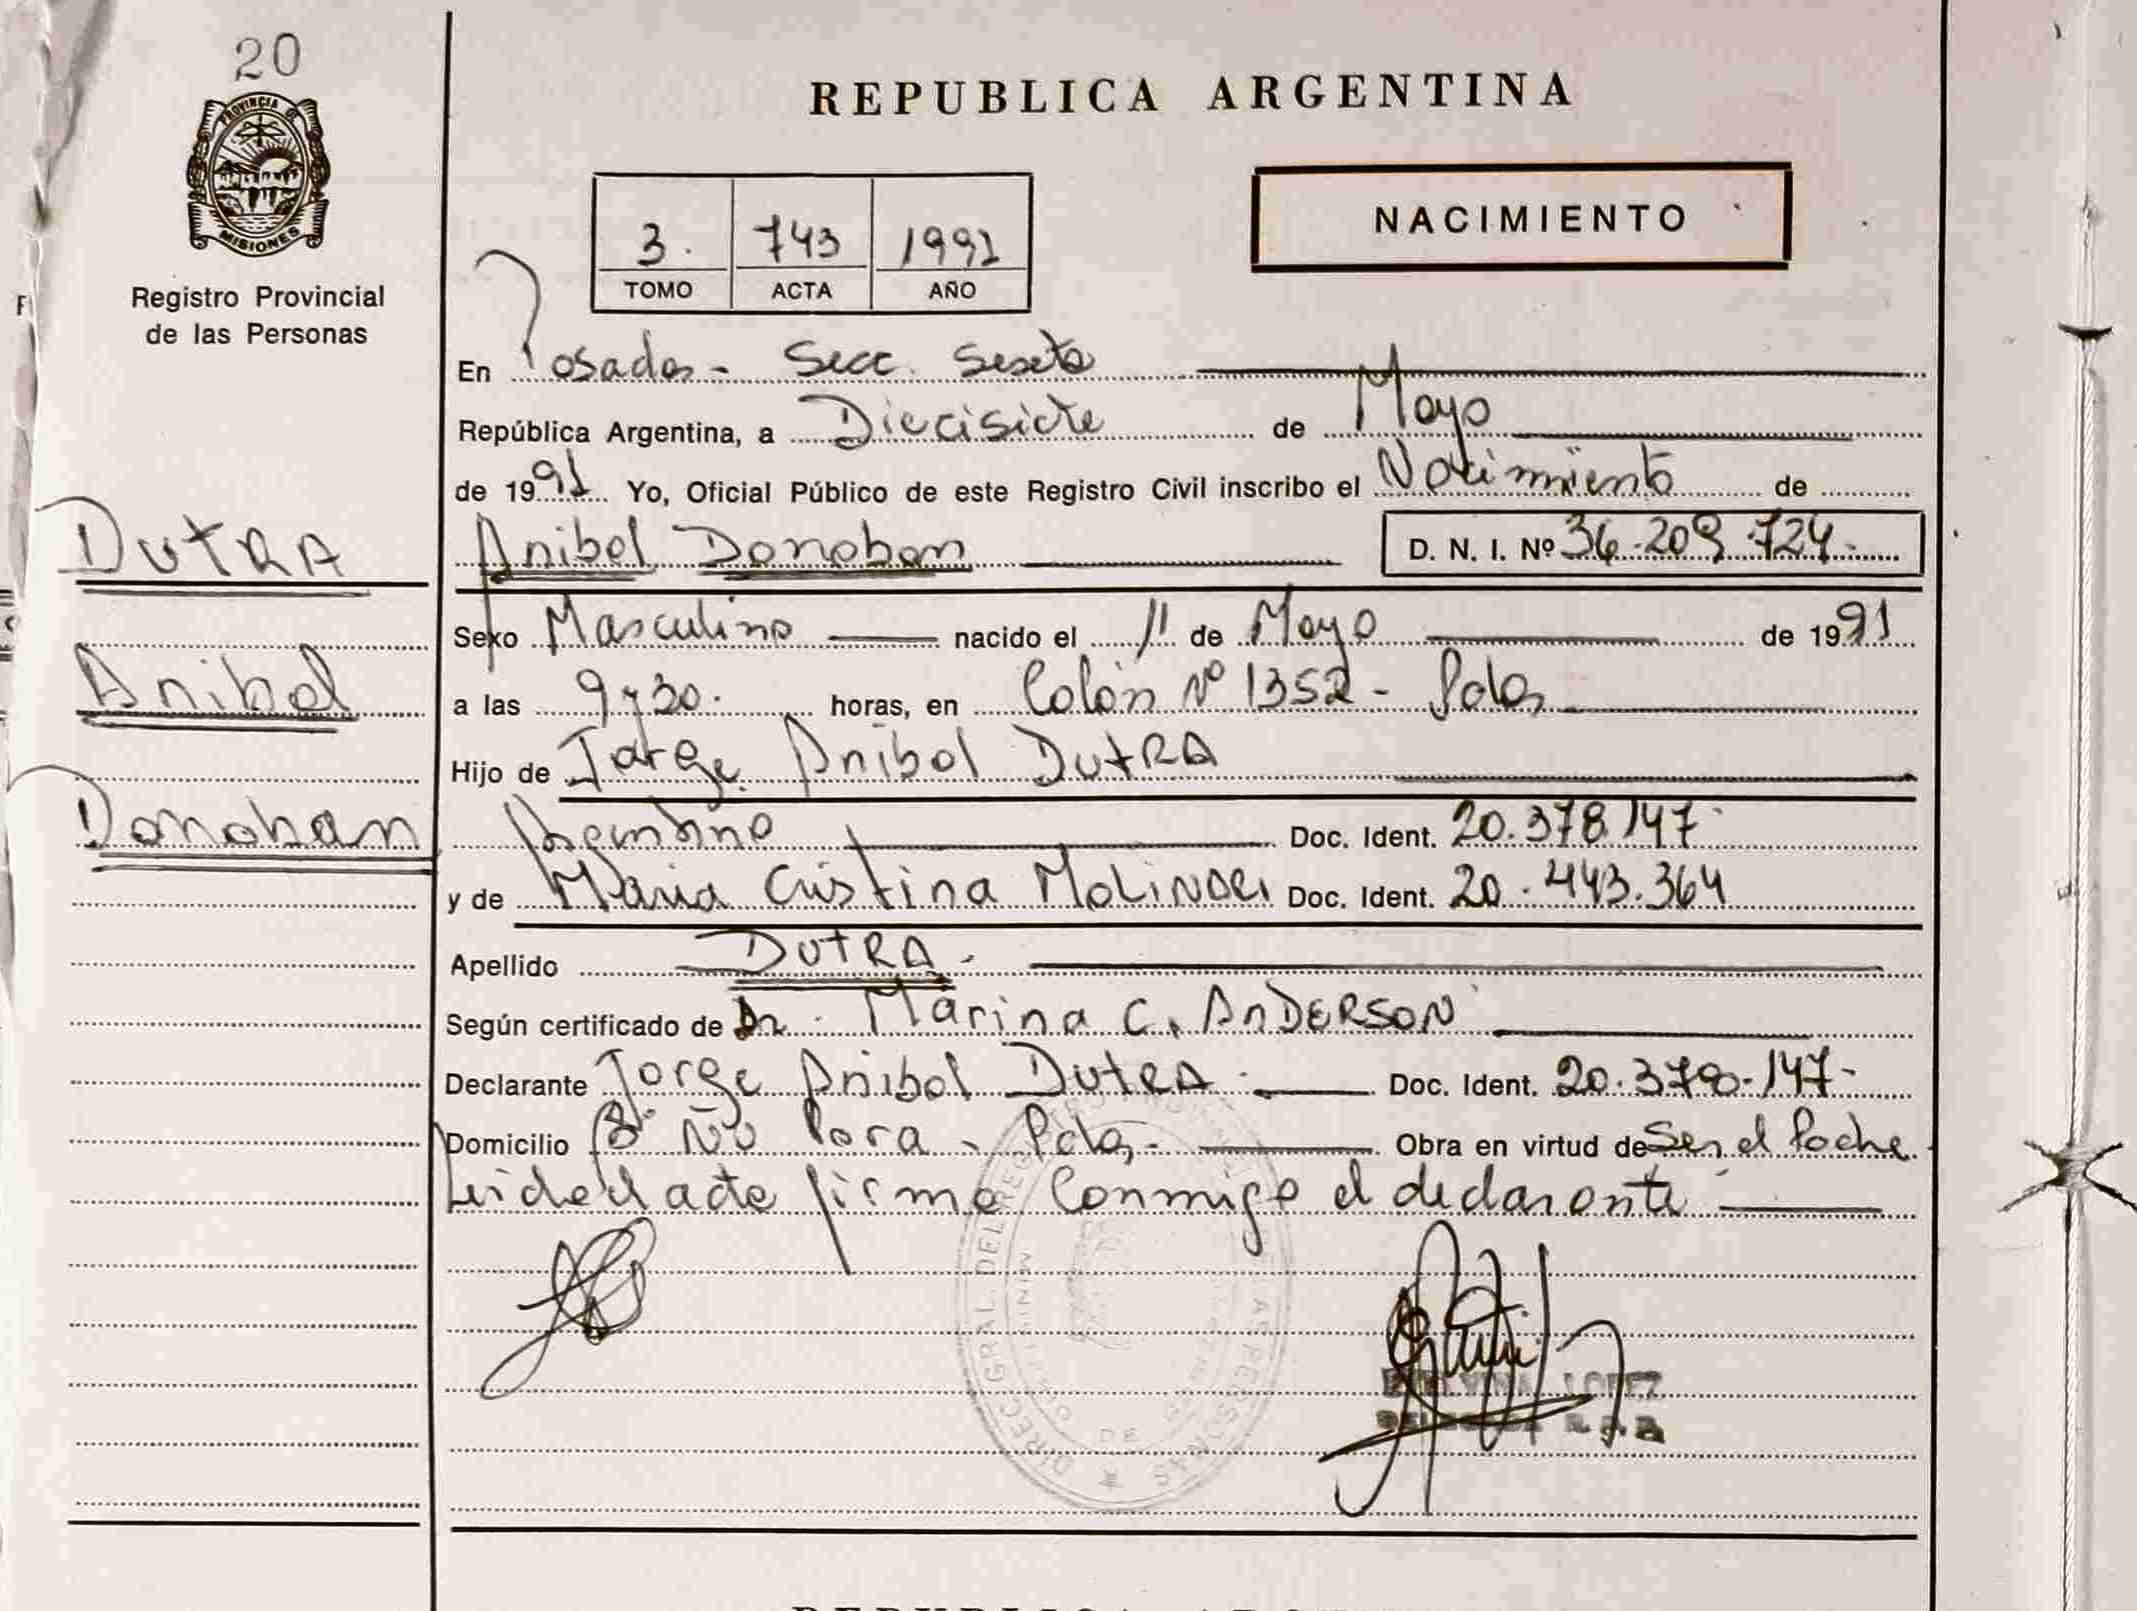 20
PROVINCIA DE
MISIONES
Registro Provincial
de las Personas
REPUBLICA ARGENTINA
3. 743 1991
TOMO ACTA AÑO
NACIMIENTO
En Posadas - Secc. Sexta
República Argentina, a Diecisiete de Mayo
de 1991 Yo, Oficial Público de este Registro Civil inscribo el Nacimiento de
DUTRA
Anibal Donohan D. N. I. Nº 36.209.724.
Sexo Masculino nacido el 11 de Mayo de 1991
Anibal
a las 9 y 30. horas, en Colón Nº 1352 - Pdas
Hijo de Jorge Anibal DUTRA
Donohan
Argentino Doc. Ident. 20.378.147
y de Maria Cristina Doc. Ident. 20.443.364
Apellido DUTRA.
Según certificado de Dr. Marina C. ANDERSON
Declarante Jorge Anibal DUTRA. Doc. Ident. 20.378.147-
Domicilio Bº Ñu Pora - Pdas- Obra en virtud de Ser el Padre.
Leida el acta firma Conmigo el declarante
DIREC. GRAL. DEL REG. PROVINCIAL DE LAS PERSONAS
LOPEZ